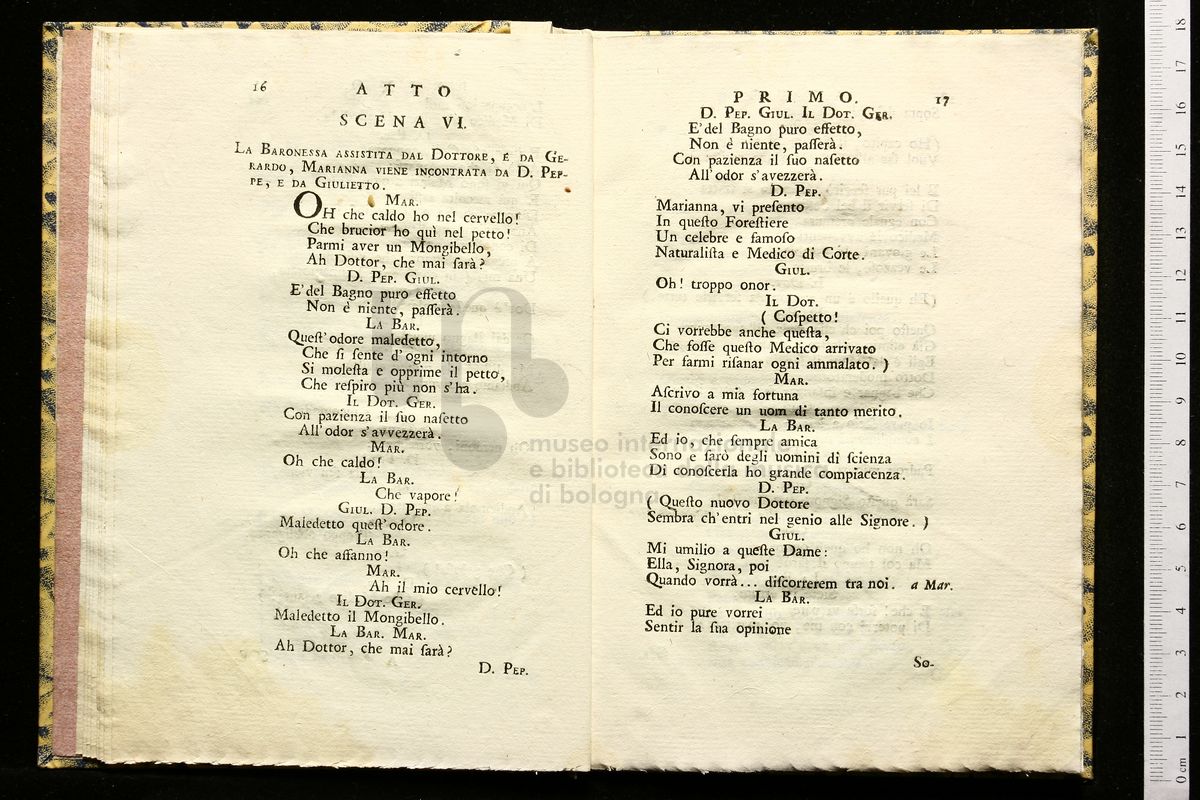 16 ATTO
SCENA VI.
LA BARONESSA ASSISTITA DAL DOTTORE, E DA GE-
RARDO, MARIANNA VIENE INCONTRATA DA D. PEP-
PE, E DA GIULIETTO.
MAR.
OH che caldo ho nel cervello!
Che brucior ho quì nel petto!
Parmi aver un Mongibello,
Ah Dottor, che mai ſarà?
D. PEP. GIUL.
E'del Bagno puro effetto
Non è niente, paſſerà.
LA BAR.
Queſt'odore maledetto,
Che ſi ſente d'ogni intorno
Si moleſta e opprime il petto,
Che reſpiro più non s'ha.
IL DOT. GER.
Con pazienza il ſuo naſetto
All'odor s'avvezzerà.
MAR.
Oh che caldo!
LA BAR.
Che vapore!
GIUL. D. PEP.
Maledetto queſt'odore.
LA BAR.
Oh che affanno!
MAR.
Ah il mio cervello!
IL DOT. GER.
Maledetto il Mongibello.
LA BAR. MAR.
Ah Dottor, che mai ſarà?
D. PEP.
PRIMO. 17
D. PEP. GIUL. IL DOT. GER.
E'del Bagno puro effetto,
Non è niente, paſſerà.
Con pazienza il ſuo naſetto
All'odor s'avezzerà.
D. PEP.
Marianna, vi preſento
In queſto Foreſtiere
Un celebre e famoſo
Naturaliſta e Medico di Corte.
GIUL.
Oh! troppo onor.
IL DOT.
( Coſpetto!
Ci vorrebbe anche queſta,
Che foſſe queſto Medico arrivato
Per farmi riſanar ogni ammalato. )
MAR.
Aſcrivo a mia fortuna
Il conoſcere un uom di tanto merito.
LA BAR.
Ed io, che ſempre amica
Sono e ſarò degli uomini di ſcienza
Di conoſcerla ho grande compiacenza.
D. PEP.
( Queſto nuovo Dottore
Sembra ch'entri nel genio alle Signore. )
GIUL.
Mi umilio a queſte Dame:
Ella, Signora, poi
Quando vorrà... diſcorrerem tra noi. a Mar.
LA BAR.
Ed io pure vorrei
Sentir la ſua opinione
So-
museo internazionale
e biblioteca della musica
di bologna
0 cm 1 2 3 4 5 6 7 8 9 10 11 12 13 14 15 16 17 18